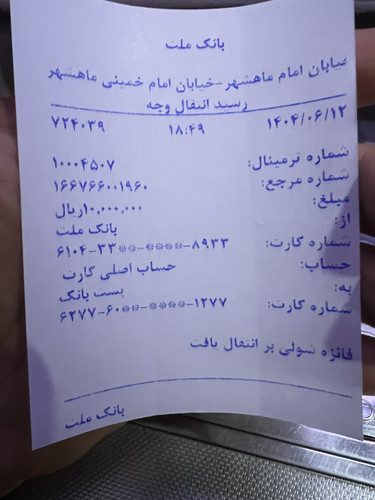 بانک ملت
خیابان امام ماهشهر-خیابان امام خمینی ماهشهر
رسید انتقال وجه
۱۴۰۴/۰۶/۱۲ ۱۸:۴۹ ۷۲۴۰۳۹
شماره ترمینال: ۱۰۰۰۴۵۰۷
شماره مرجع: ۱۶۶۷۶۶۰۰۱۹۶۰
مبلغ: ۱۰,۰۰۰,۰۰۰ریال
از: بانک ملت
شماره کارت: ۶۱۰۴-۳۳**-****-۸۹۳۳
حساب: حساب اصلی کارت
به: پست بانک
شماره کارت: ۶۲۷۷-۶۰**-****-۱۲۷۷
فائزه شولی بر انتقال یافت
بانک ملت